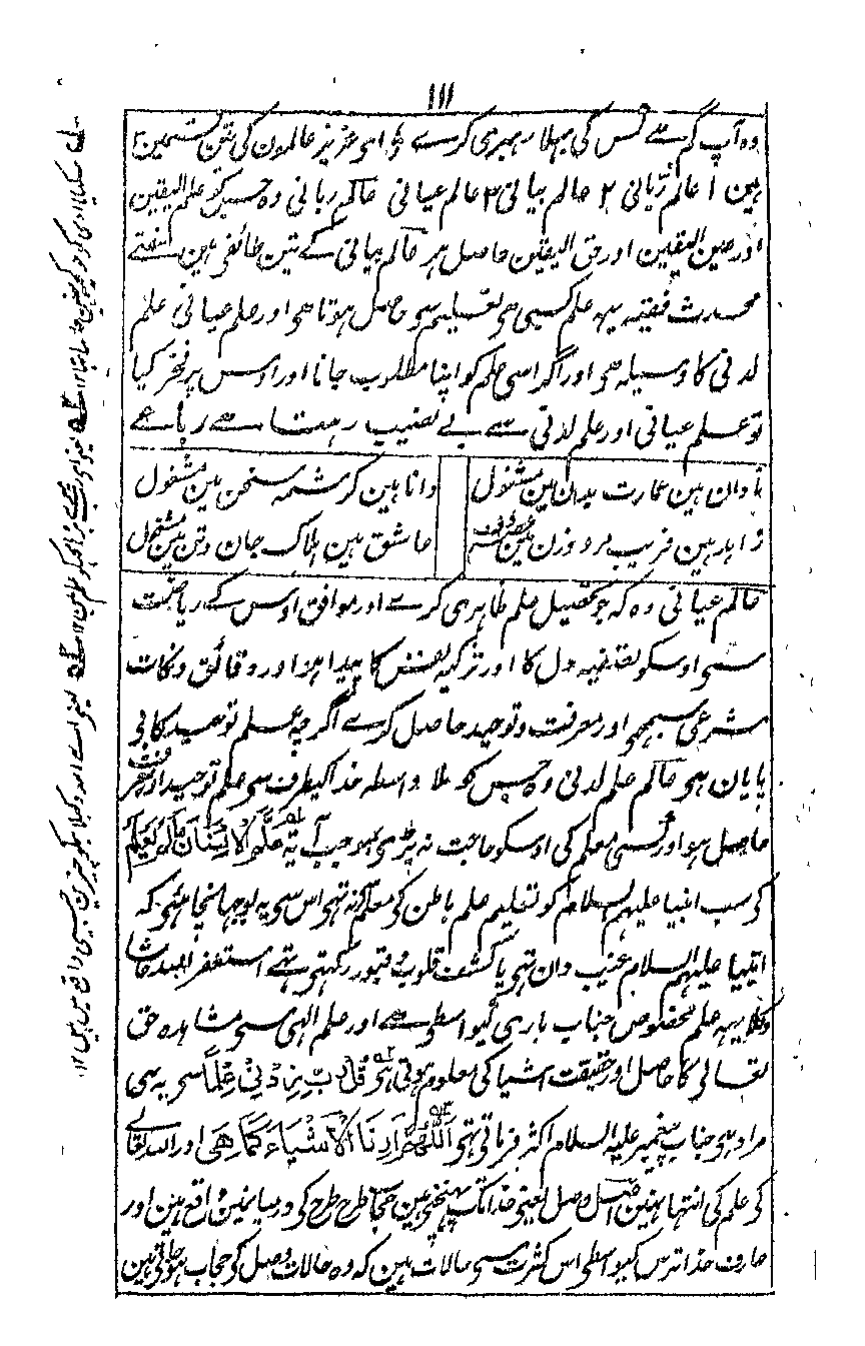 ۱۱۱
وہ آپ گم ہے کس کی بہلا رہبری کرے ای عزیز عالمون کی تین قسمین
ہین ۱ عالم زبانی ۲ عالم بیانی ۳ عالم عیانی عالم ربانی وہ جسکو علم الیقین
اور عین الیقین اور حق الیقین حاصل ہر عالم بیانی کے تین طائفی ہین
محدث فقیہ یہہ علم کسبی ہی تعلیم سی حاصل ہوتا ہی اور علم عیانی علم
لدنی کا وسیلہ ہی اور اگر اسی علم کو اپنا مطلوب جانا اور اوس پر فخر کیا
تو علم عیانی اور علم لدنی سے بے نصیب رہتا ہے رباعے
نادان ہین عمارت بدن مین مشغول دانا ہین کرشمہ سخن مین مشغول
زاہد ہین فریب مرد و زن مین مصروف عاشق ہین ہلاک جان و تن مین مشغول
عالم عیانی وہ کہ جو تحصیل علم ظاہری کرے اور موافق اوس کے ریاضت
سی اوسکو تصفیہ دل کا اور تزکیہ نفس کا پیدا ہو اور دقائق و نکات
شرعی سمجھی اور معرفت و توحید حاصل کرے اگرچہ علم توحید کا بی
پایان ہی عالم علم لدنی وہ جس کو بلا واسطہ خدا کیطرف سی علم توحید اور معرفت
حاصل ہو اور کسی معلم کی اوسکو حاجت نہ پڑی بموجب آیۃ عَلَّمَ الْاِنْسَانَ مَالَمْ یَعْلَمْ
کی سب انبیا علیہم السلام کو تعلیم علم باطن کی معلم کی نہ تہی اس سی یہ نہ بوجہا چاہئی کہ
انبیا علیہم السلام غیب دان تہی یا کشف قلوب و قبور رکہتی تہے استغفر اللہ حاشا
وکلا یہہ علم مخصوص جناب باری کیواسطی ہے اور علم الہی سی مشاہدہ حق
تعالی کا حاصل اور حقیقت اشیا کی معلوم ہوتی ہی قُلْ رَبِّ زِدْنِیْ عِلْماً سی یہ ہی
مراد ہی جناب پیغمبر علیہ السلام اکثر فرماتی تہی اَللّٰهُمَّ اَرِنَا الْاَشْیَاءَ کَمَا هِیَ اور اللہ تعالے
کی علم کی انتہا نہین اصل وصل یعنی خدا تک پہنچنی مین حجاب طرح طرح کی درمیان مین واقع ہین اور
عارف خدا ترس کیواسطی اس کثرت سی حالات ہین کہ وہ حالات وصل کو حجاب ہو جاتی ہین